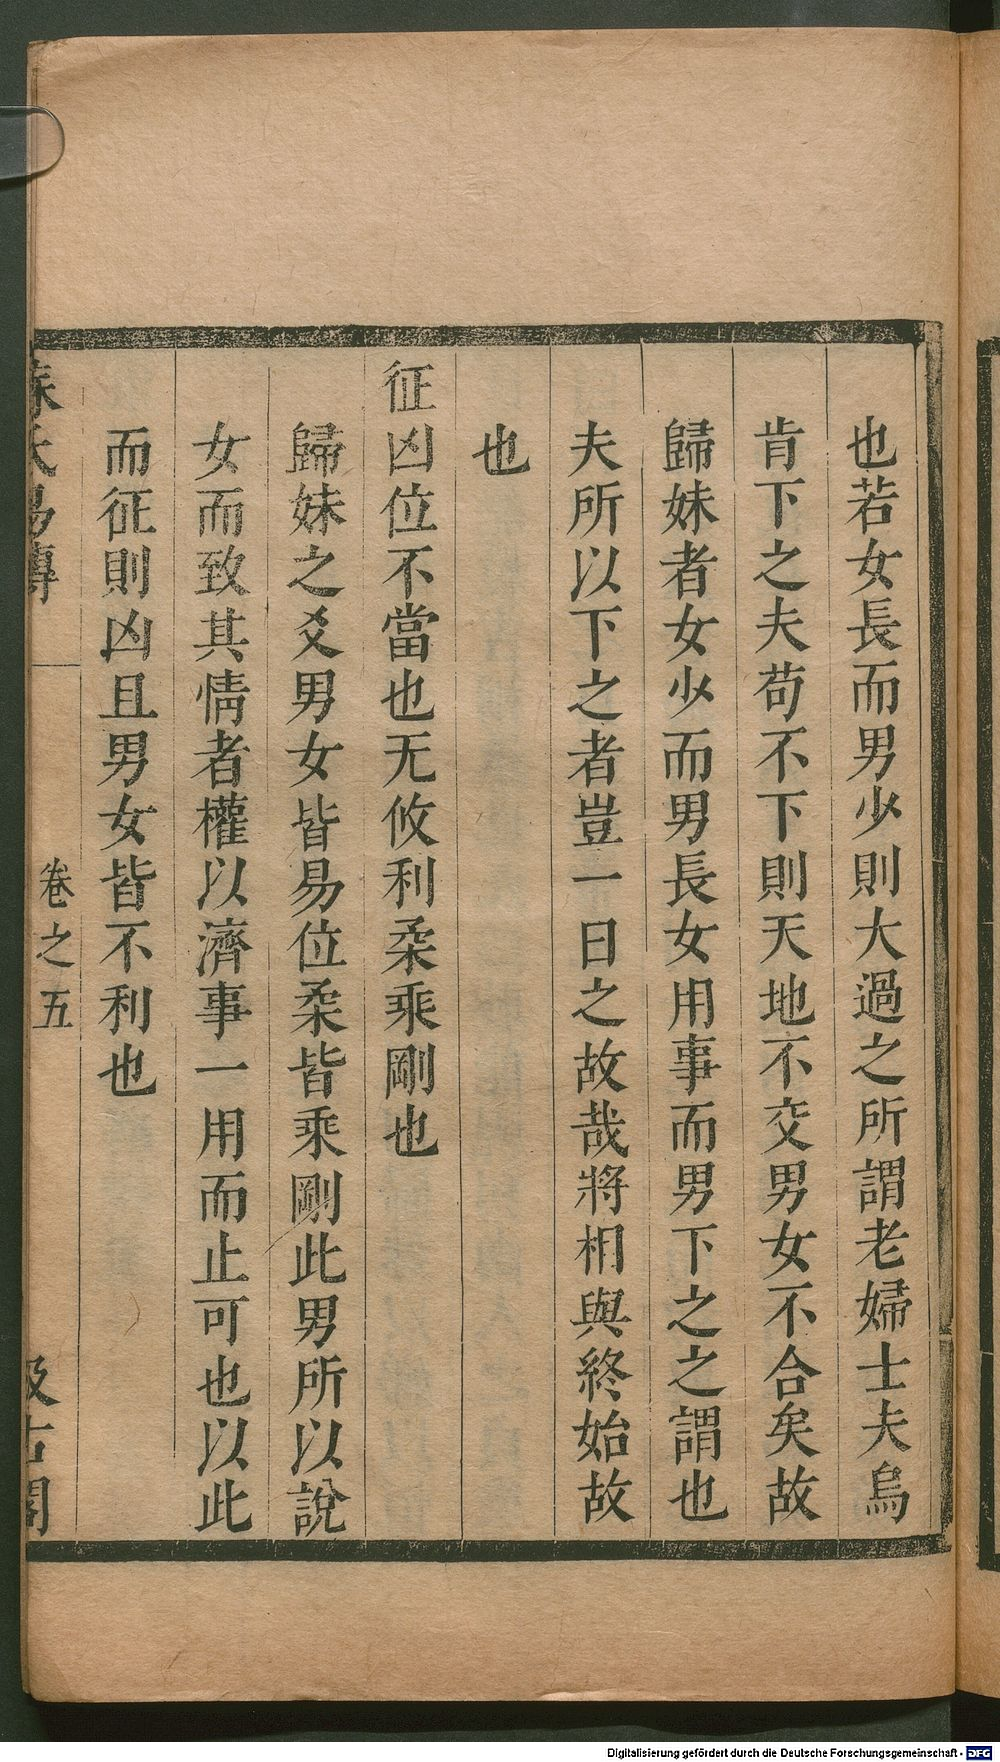 也若女長而男少則大過之所謂老婦士夫烏
肯下之夫苟不下則天地不交男女不合矣故
歸妹者女少而男長女用事而男下之之謂也
夫所以下之者豈一日之故哉將相與終始故
也
征凶位不當也无攸利柔乘剛也
歸妹之爻男女皆易位柔皆乘剛此男所以說
女而致其情者權以濟事一用而止可也以此
而征則凶且男女皆不利也
蘇氏易傳
卷之五
汲古閣
Digitalisierung gefördert durch die Deutsche Forschungsgemeinschaft - DFG